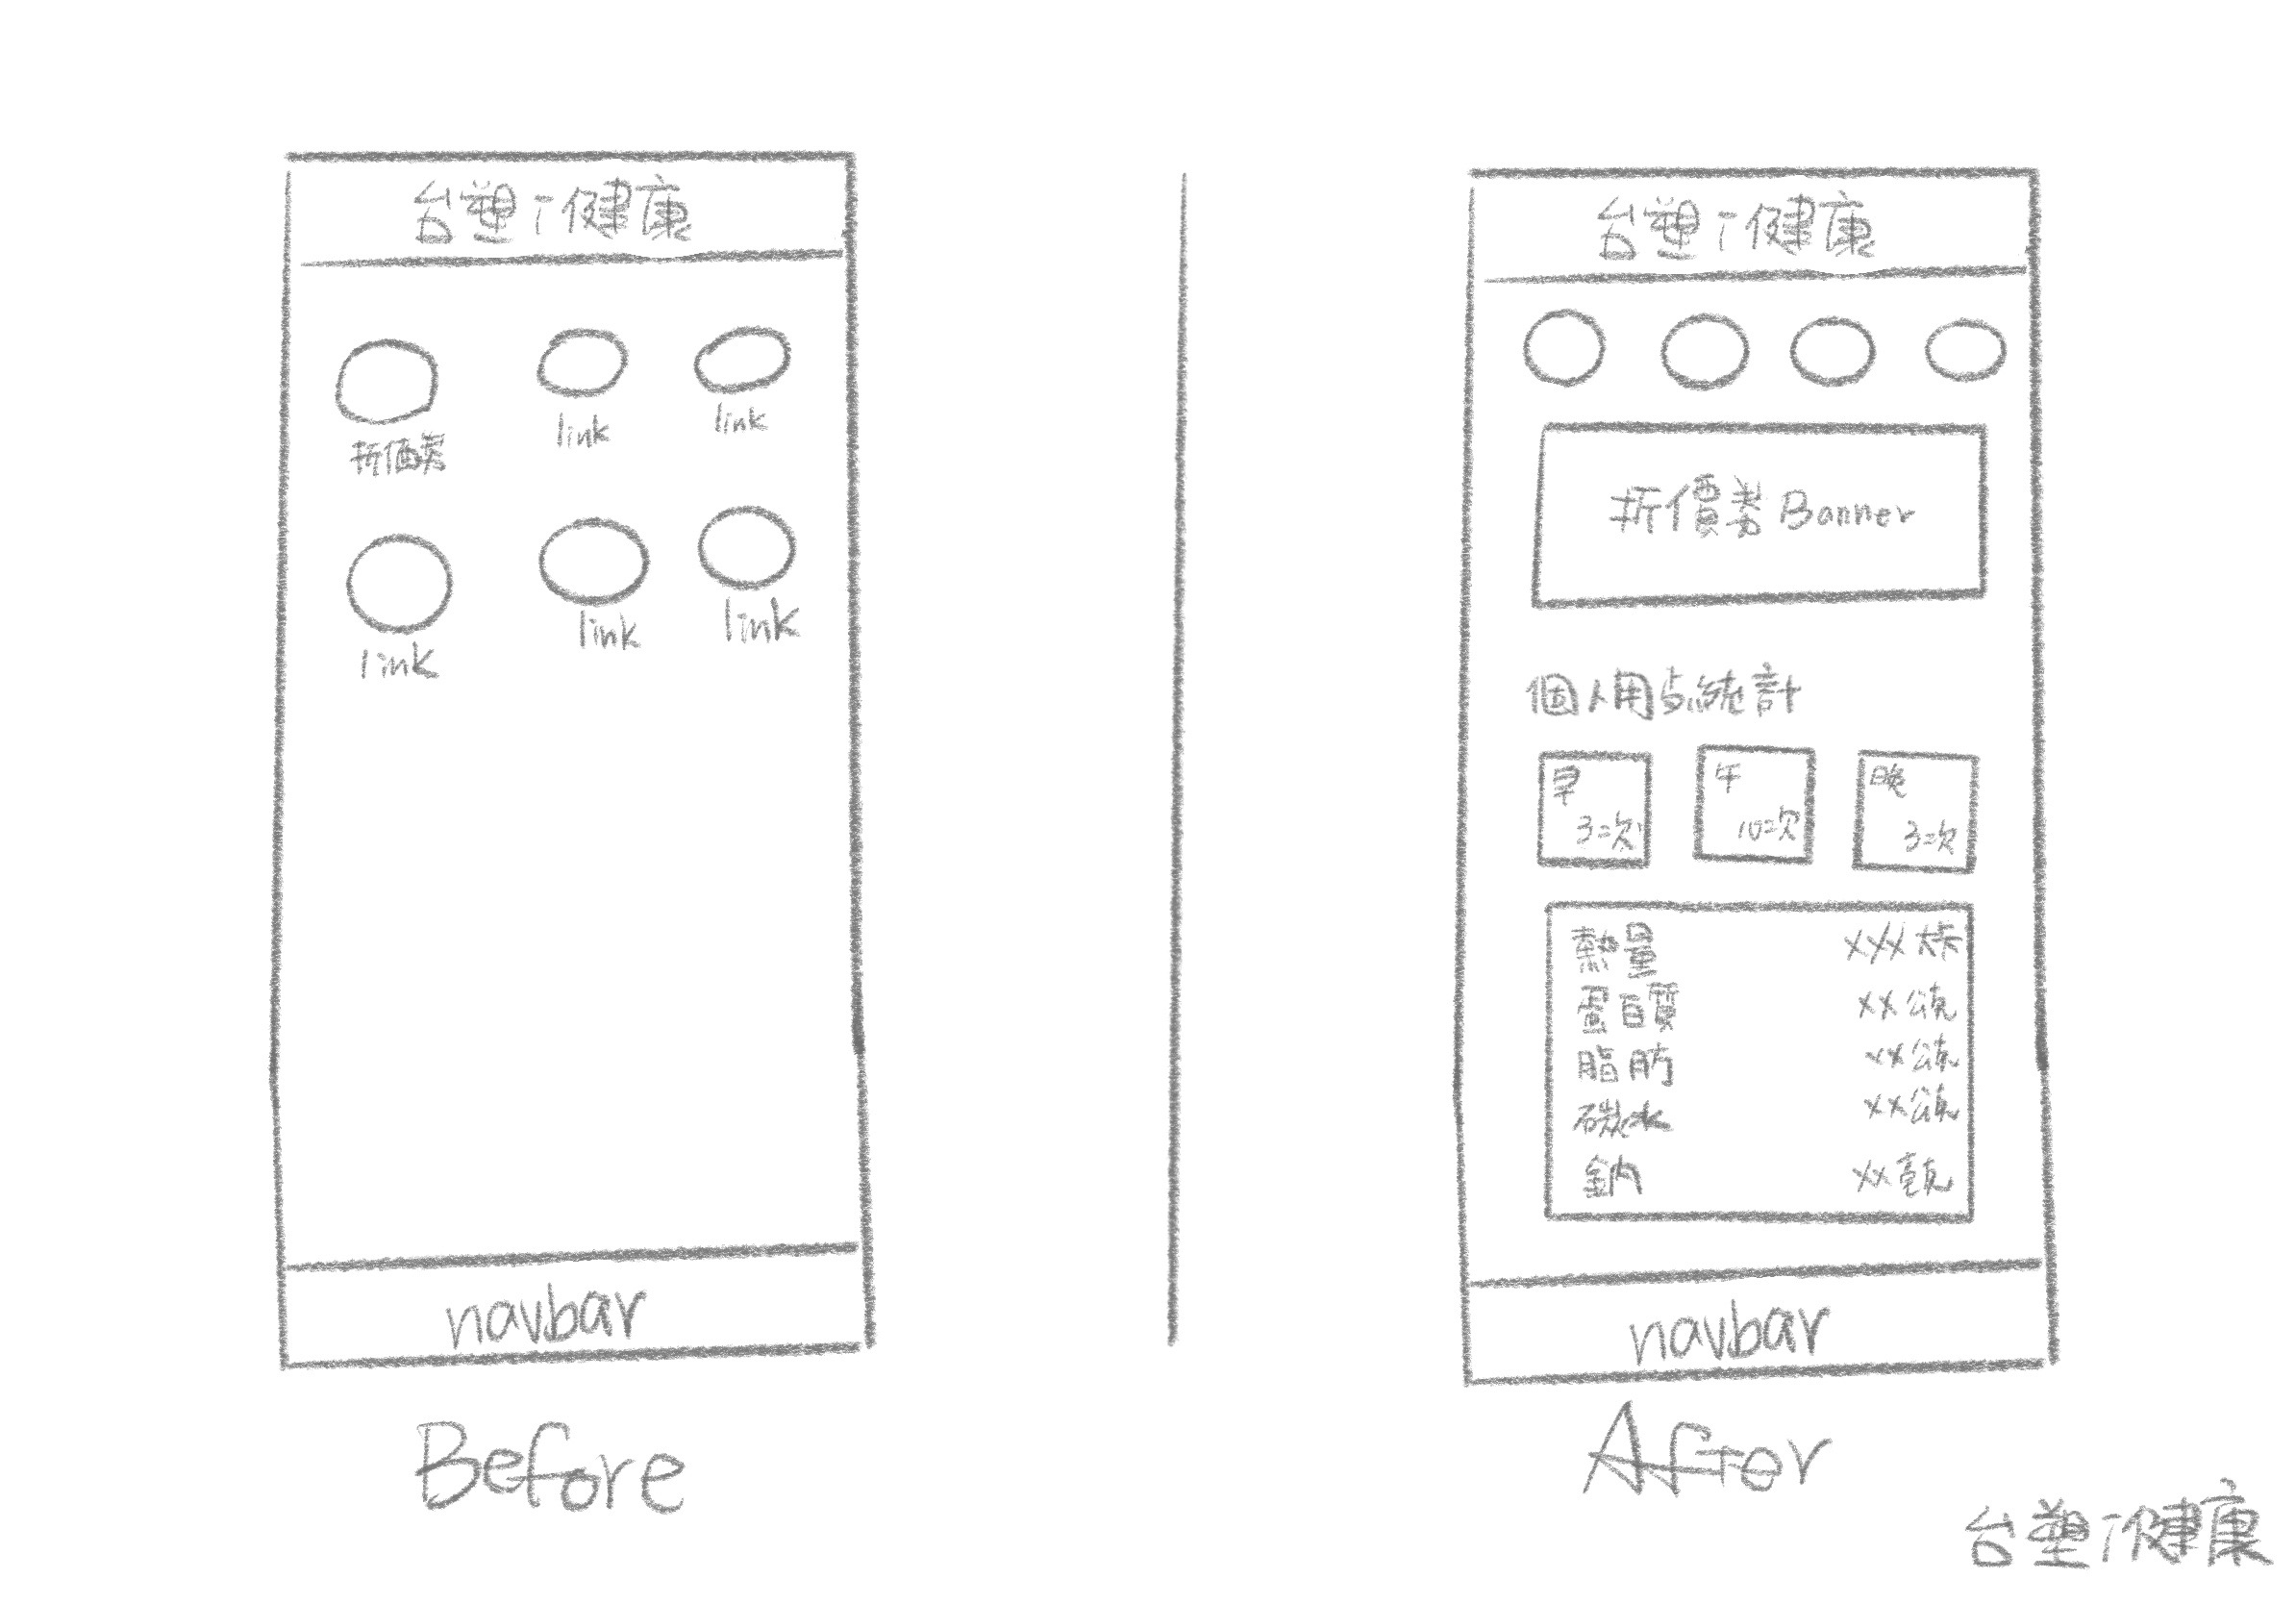 台塑i健康
折価券
link
link
link
link
link
navbar
Before
台塑i健康
折價券 Banner
個人用点統計
早
3次
午
10次
晚
3次
熱量 xxx 大卡
蛋白質 xx 公克
脂肪 xx 公克
碳水 xx 公克
鈉 xx 毫克
navbar
After
台塑i健康